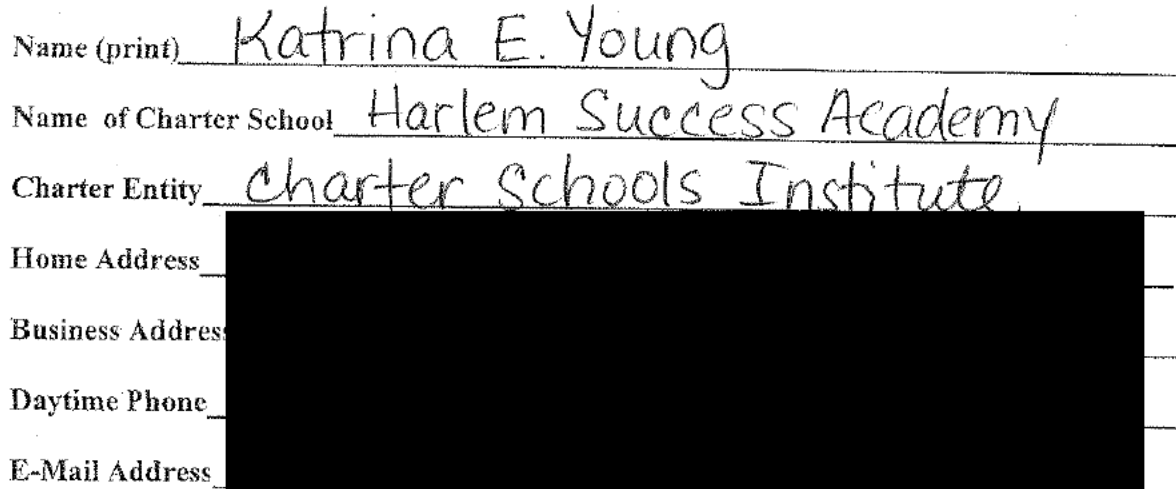 Name (print) Katrina E. Young
Name of Charter School Harlem Success Academy
Charter Entity Charter Schools Institute
Home Address
Business Address
Daytime Phone
E-Mail Address